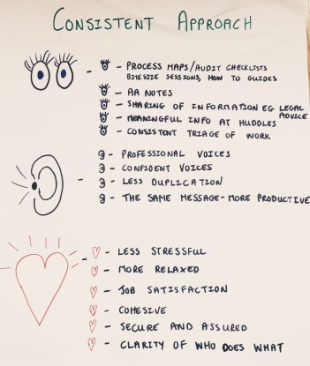 CONSISTENT APPROACH
- PROCESS MAPS/AUDIT CHECKLISTS
BITESIZE SESSIONS, HOW TO GUIDES
- AA NOTES
- SHARING OF INFORMATION EG LEGAL
ADVICE
- MEANINGFUL INFO AT HUDDLES
- CONSISTENT TRIAGE OF WORK
- PROFESSIONAL VOICES
- CONFIDENT VOICES
- LESS DUPLICATION
- THE SAME MESSAGE - MORE PRODUCTIVE
- LESS STRESSFUL
- MORE RELAXED
- JOB SATISFACTION
- COHESIVE
- SECURE AND ASSURED
- CLARITY OF WHO DOES WHAT